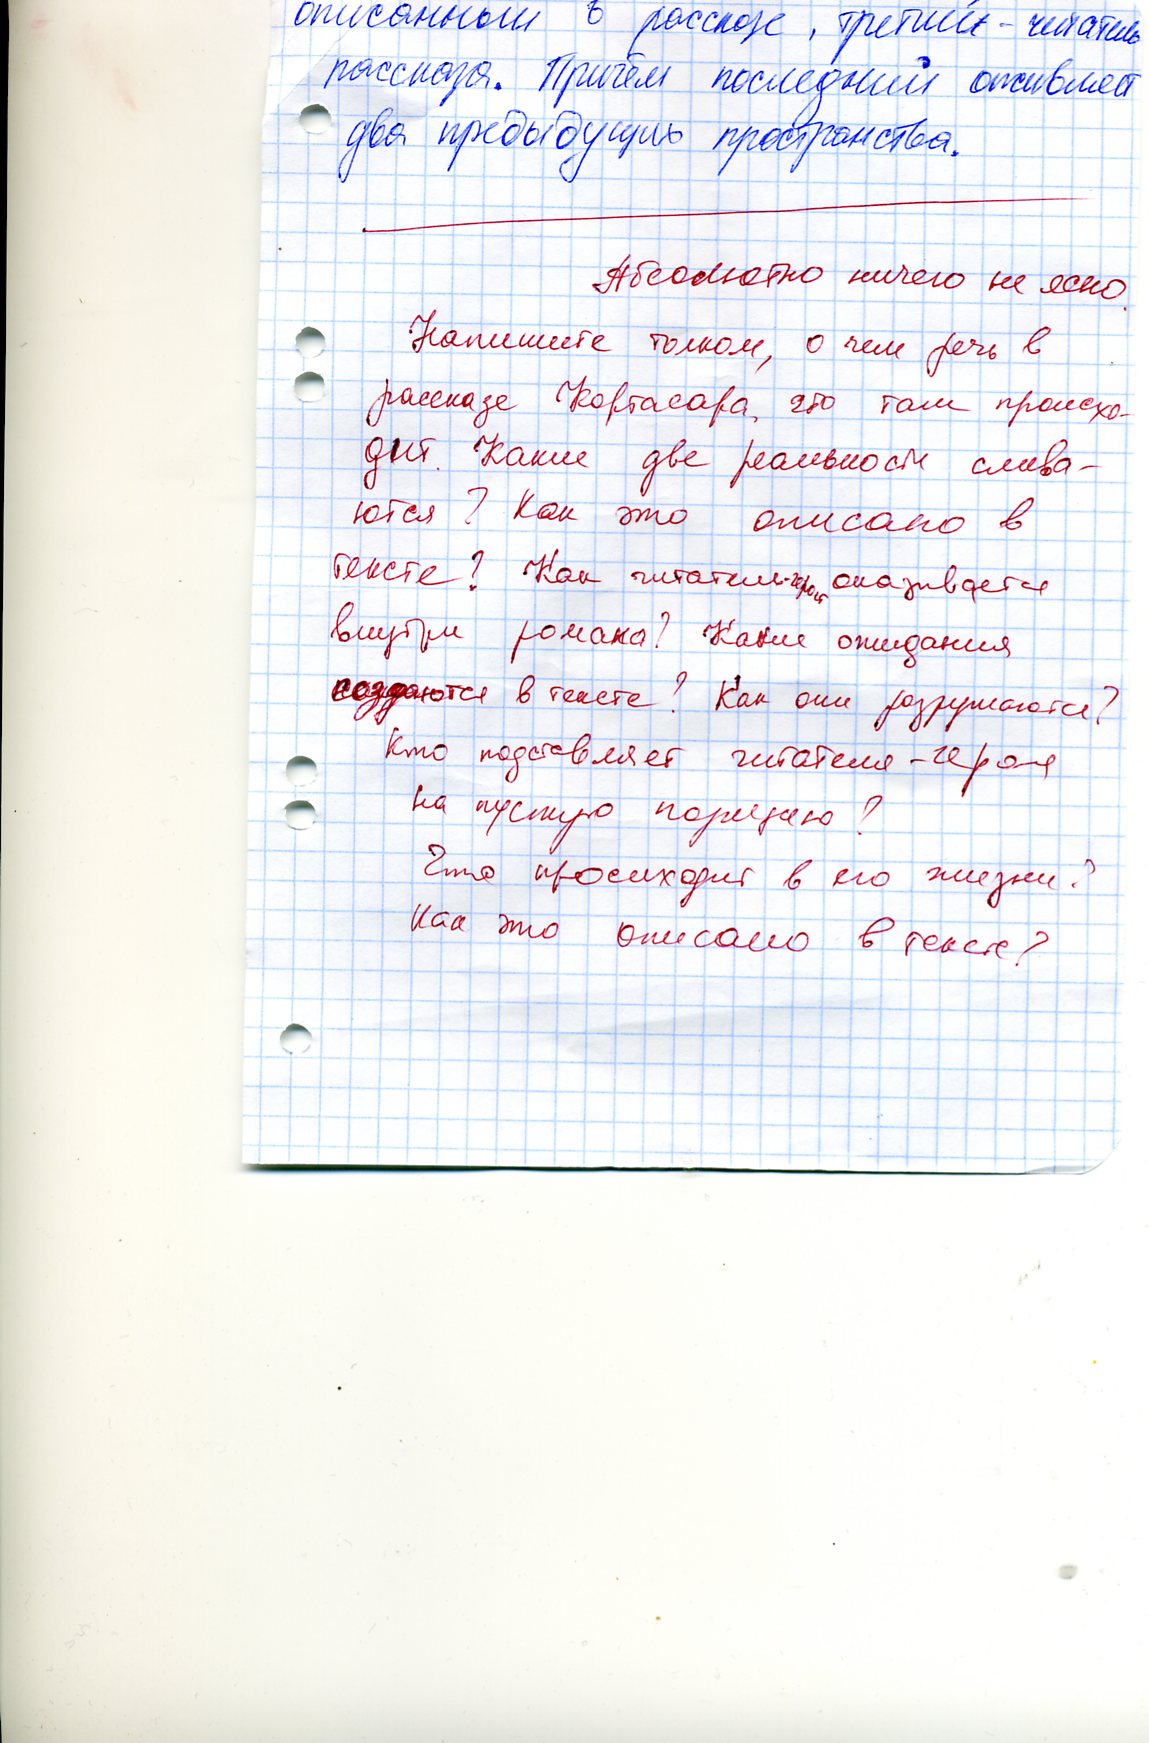 описанный в рассказе, третий - читатель
рассказа. Причём последний оживляет
два предыдущих пространства.
Абсолютно ничего не ясно.
Напишите толком, о чем речь в
рассказе Кортасара, что там происхо-
дит. Какие две реальности слива-
ются? Как это описано в
тексте? Как читатель-герой оказывается
внутри романа? Какие ожидания
создаются в тексте? Как они разрушаются?
Кто подставляет читателя-героя
на пустую позицию?
Что просиходит в его жизни?
Как это описано в тексте?